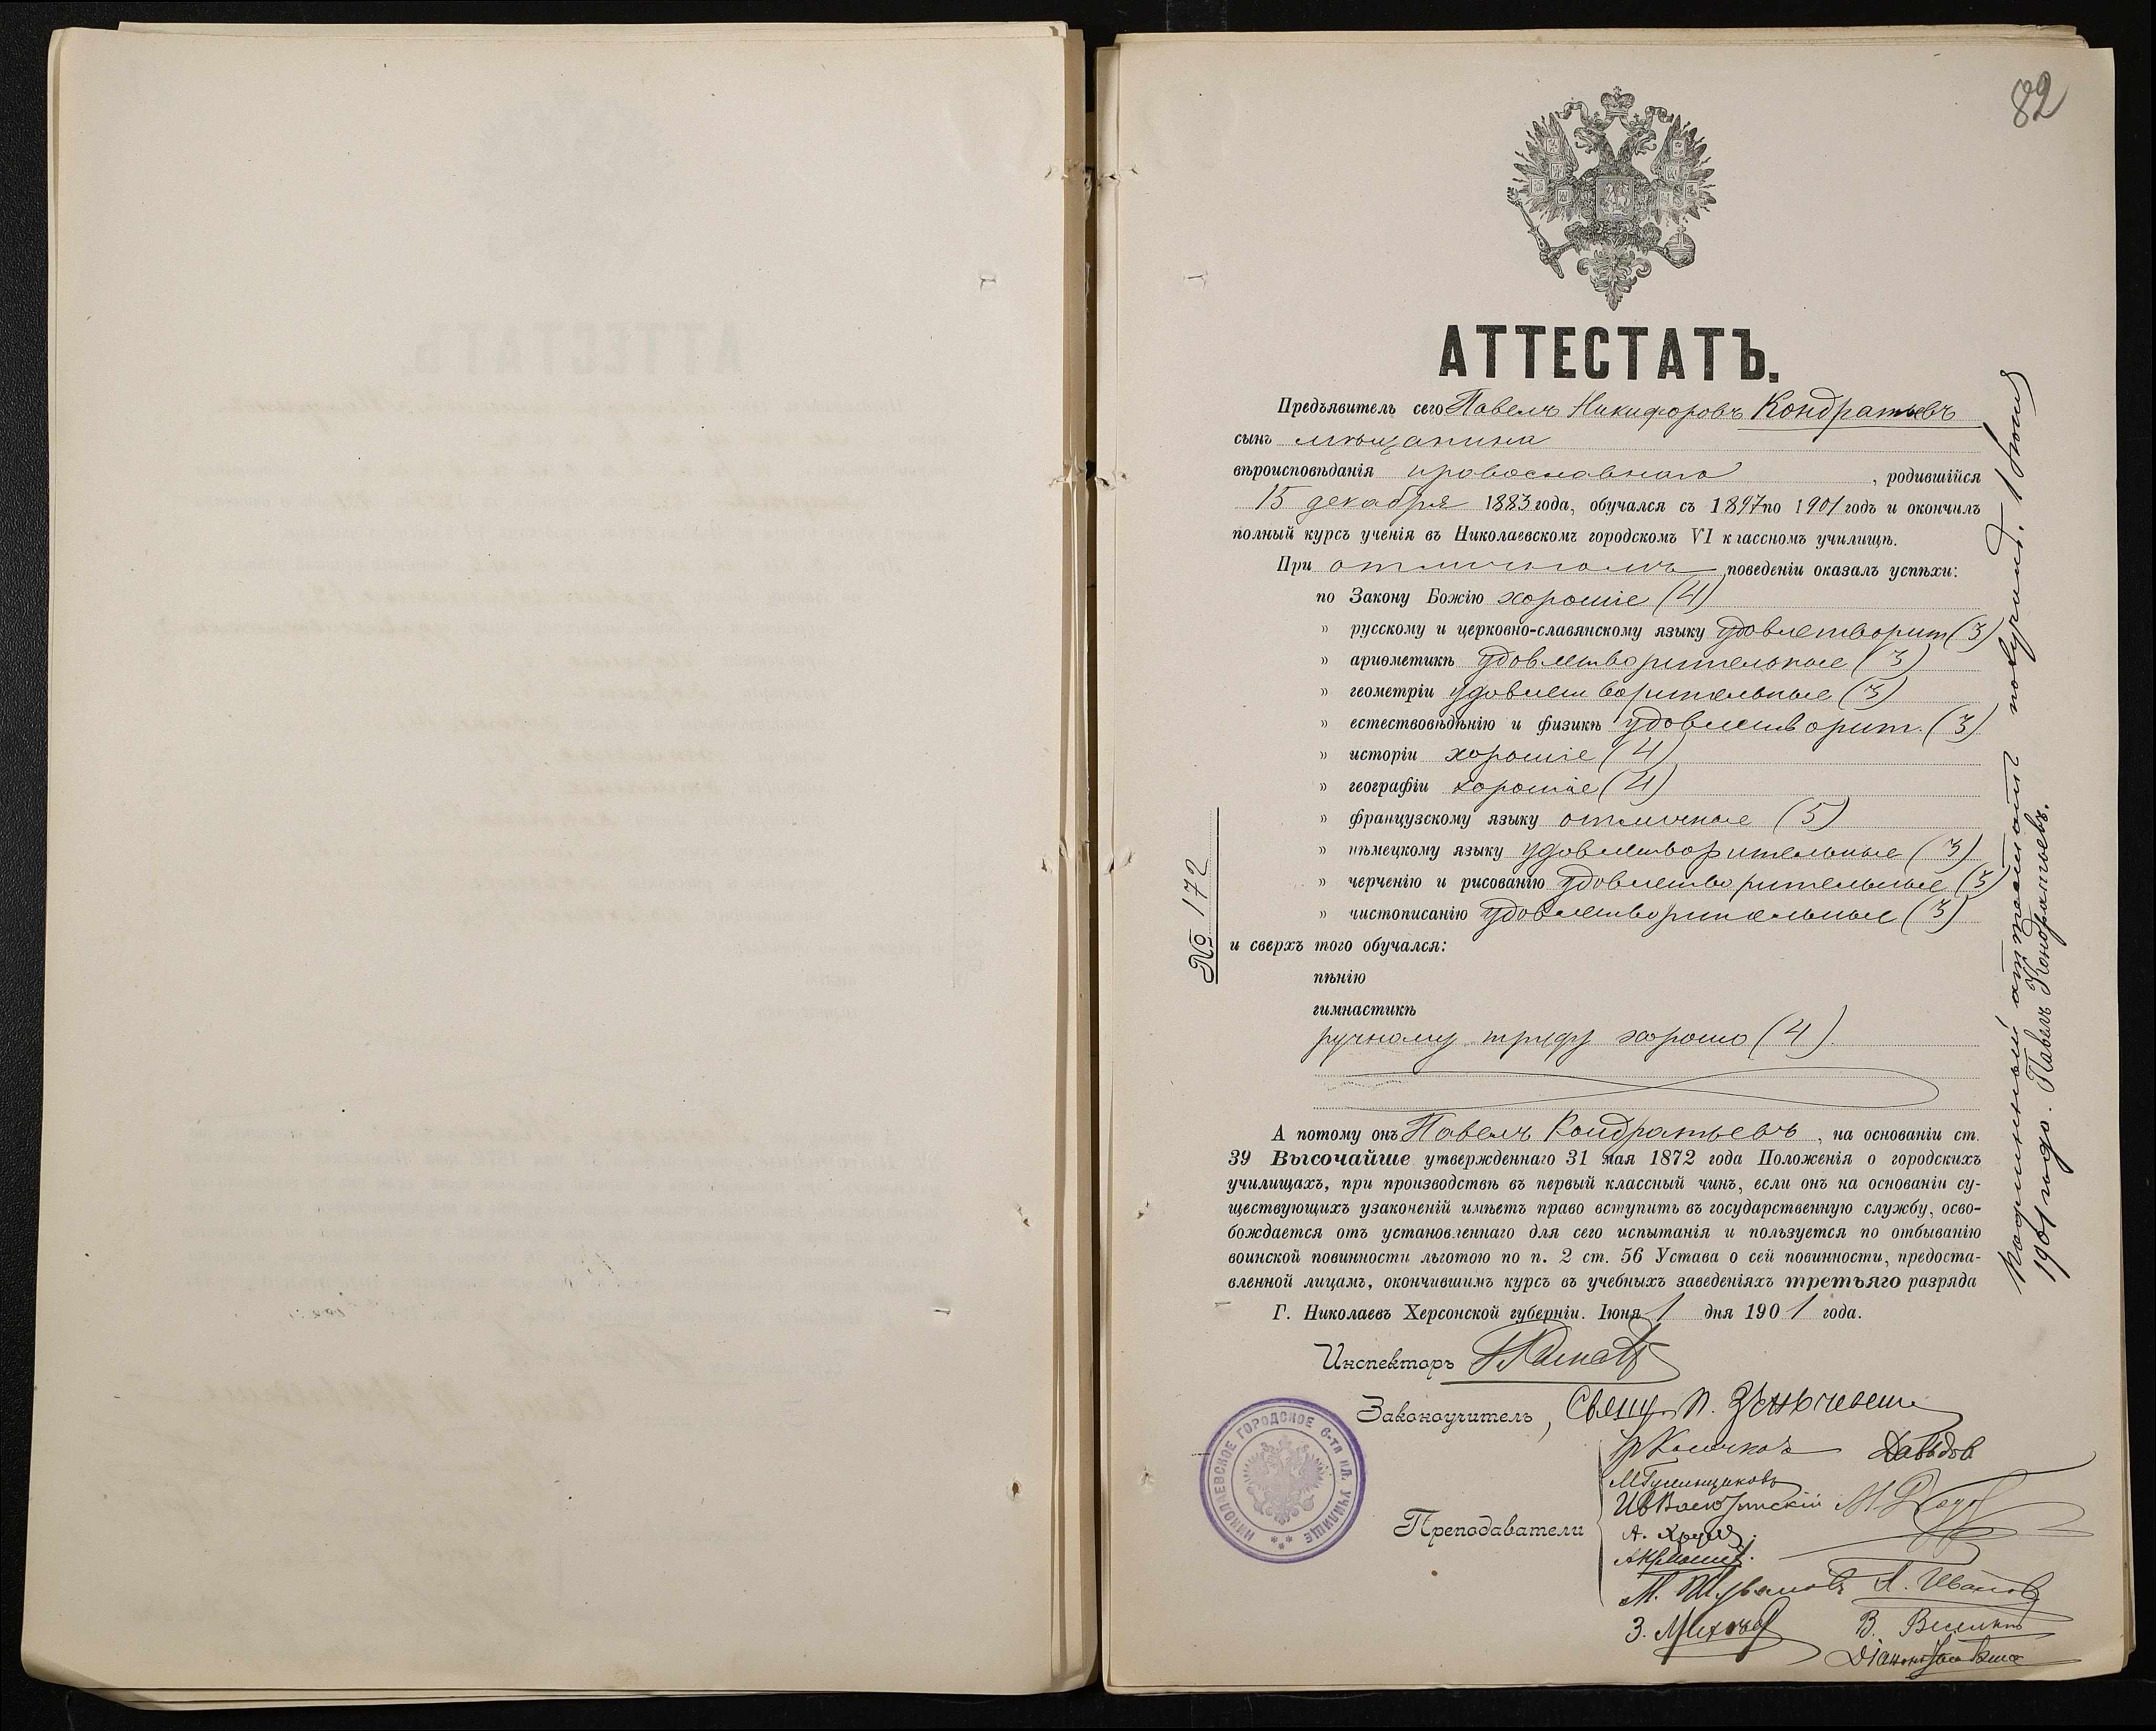 82
АТТЕСТАТЪ.
Предъявитель сего Павелъ Никифоровъ Кондратьевъ
сынъ мѣщанина
вѣроисповѣданія православнаго, родившійся
15 декабря 1883 года, обучался съ 1897 по 1901 годъ и окончилъ
полный курсъ ученія въ Николаевскомъ городскомъ VI классномъ училищѣ.
При отличномъ поведеніи оказалъ успѣхи:
по Закону Божію хорошіе (4)
" русскому и церковно-славянскому языку удовлетворит (3)
" ариѳметикѣ удовлетворительные (3)
" геометріи удовлетворительные (3)
" естествовѣдѣнію и физикѣ удовлетворит. (3)
" исторіи хорошіе (4)
" географіи хорошіе (4)
" французскому языку отличные (5)
" нѣмецкому языку удовлетворительные (3)
" черченію и рисованію удовлетворительные (3)
" чистописанію удовлетворительные (3)
и сверхъ того обучался:
пѣнію
гимнастикѣ
ручному труду хорошо (4).
А потому онъ Павелъ Кондратьевъ, на основаніи ст.
39 Высочайше утвержденнаго 31 мая 1872 года Положенія о городскихъ
училищахъ, при производствѣ въ первый классный чинъ, если онъ на основаніи су-
ществующихъ узаконеній имѣетъ право вступить въ государственную службу, осво-
бождается отъ установленнаго для сего испытанія и пользуется по отбыванію
воинской повинности льготою по п. 2 ст. 56 Устава о сей повинности, предоста-
вленной лицамъ, окончившимъ курсъ въ учебныхъ заведеніяхъ третьяго разряда
Г. Николаевъ Херсонской губерніи. Іюня 1 дня 1901 года.
Инспекторъ
Законоучитель, Свящ. П.
Преподаватели
Давыдов
А.
М.
А. Иванов
З.
В.
НИКОЛАЕВСКОЕ ГОРОДСКОЕ 6-ТИ КЛ. УЧИЛИЩЕ
№ 172
Подлинный аттестатъ получилъ. 1 іюня
1901 года. Павелъ Кондратьевъ.